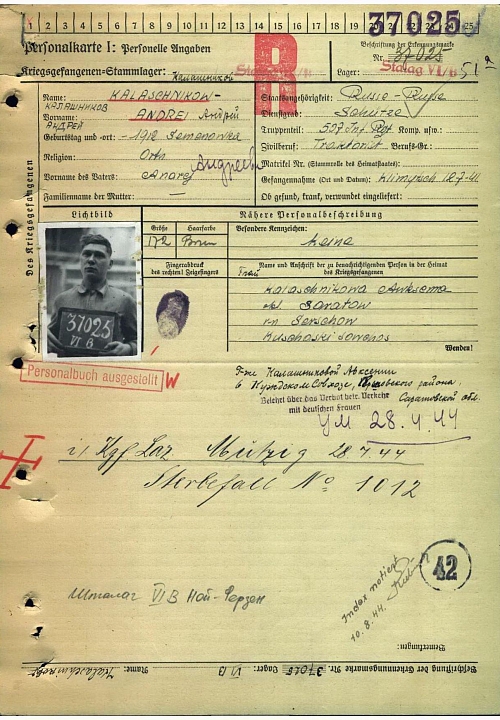 1 2 3 4 5 6 7 8 9 10 11 12 13 14 15 16 17 18 19 20 21 22 23 24 25
37025
Personalkarte I: Personelle Angaben
Beschriftung der Erkennungsmarke
Nr. 37025
Kriegsgefangenen-Stammlager: Калашников Stalag VI/B
Lager: Stalag VI/B
R
Des Kriegsgefangenen
Name: KALASCHNIKOW
КАЛАШНИКОВ
Vorname: ANDREI Андрей
АНДРЕЙ
Geburtstag und -ort: - 1912 Semenowka
Religion: Orth
Vorname des Vaters: Andrej
Андреев
Familienname der Mutter: —
Staatsangehörigkeit: Russe
Dienstgrad: Schütze
Truppenteil: 507 Inf. Rgt. Komp. usw.:
Zivilberuf: Traktorist Berufs-Gr.:
Matrikel Nr. (Stammrolle des Heimatstaates):
Gefangennahme (Ort und Datum):
Ob gesund, krank, verwundet eingeliefert:
Lichtbild
Nähere Personalbeschreibung
Größe
Haarfarbe
Besondere Kennzeichen:
172
keine
Fingerabdruck
des rechten! Zeigefingers
Name und Anschrift der zu benachrichtigenden Person in der Heimat
des Kriegsgefangenen
Frau
Kalaschnikowa
Saratow
r-n
37025
VI B
Wenden!
Personalbuch ausgestellt W
Г-же Калашниковой Аксении
в совхозе, района,
Саратовской обл.
Belehrt über das Verbot betr. Verkehr
mit deutschen Frauen
УМ 28.4.44
i/ Kgf. Laz. Mützig 28.4.44
Sterbefall No 1012
42
Шталаг VI B Ной-Ферзен
Index notiert
10.8.44.
Bemerkungen:
Beschriftung der Erkennungsmarke Nr. 37025 Lager: VI B Name: Kalaschnikow